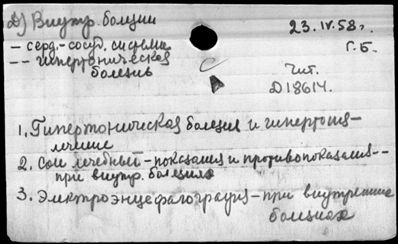 Д) Внутр. болезни
23.IV.58г.
– серд.-сосуд. системы
Г.Б.
-- гипертоническая
болезнь
Чит.
Д18614.
1. Гипертоническая болезнь и гипертония –
лечение
2. Сон лечебный – показания и противопоказания –
при внутр. болезнях
3. Электроэнцефалография – при внутренних
болезнях